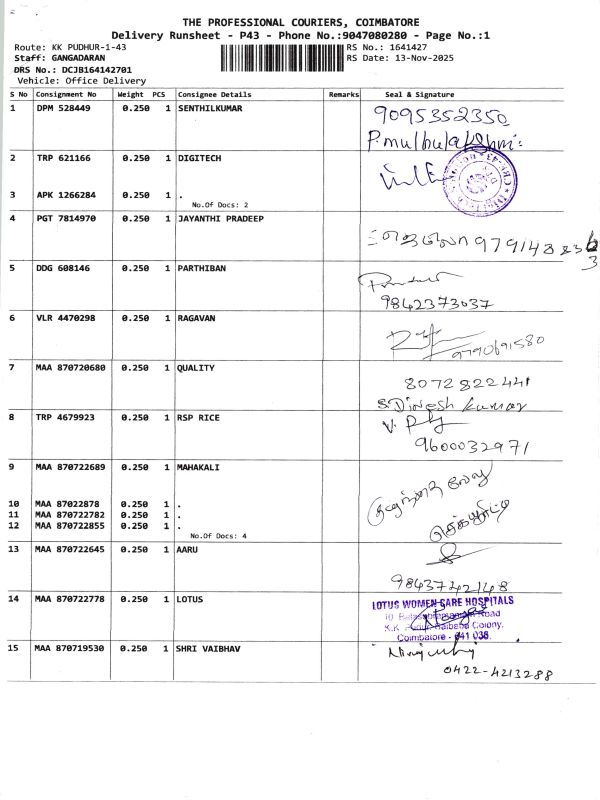 THE PROFESSIONAL COURIERS, COIMBATORE
Delivery Runsheet - P43 - Phone No.:9047080280 - Page No.:1
Route: KK PUDHUR-1-43 RS No.: 1641427
Staff: GANGADARAN RS Date: 13-Nov-2025
DRS No.: DCJB164142701
Vehicle: Office Delivery
S No Consignment No Weight PCS Consignee Details Remarks Seal & Signature
1 DPM 528449 0.250 1 SENTHILKUMAR 9095352350
2 TRP 621166 0.250 1 DIGITECH
3 APK 1266284 0.250 1 .
No.Of Docs: 2
4 PGT 7814970 0.250 1 JAYANTHI PRADEEP
5 DDG 608146 0.250 1 PARTHIBAN
9842373037
6 VLR 4470298 0.250 1 RAGAVAN
9790691580
7 MAA 870720680 0.250 1 QUALITY 8072822441
S.Dinesh kumar
8 TRP 4679923 0.250 1 RSP RICE
9600032971
9 MAA 870722689 0.250 1 MAHAKALI
10 MAA 87022878 0.250 1 .
11 MAA 870722782 0.250 1 .
12 MAA 870722855 0.250 1 .
No.Of Docs: 4
13 MAA 870722645 0.250 1 AARU
9843742148
14 MAA 870722778 0.250 1 LOTUS LOTUS WOMEN CARE HOSPITALS
Road
Colony,
Coimbatore - 641 038.
15 MAA 870719530 0.250 1 SHRI VAIBHAV
0422-4213288